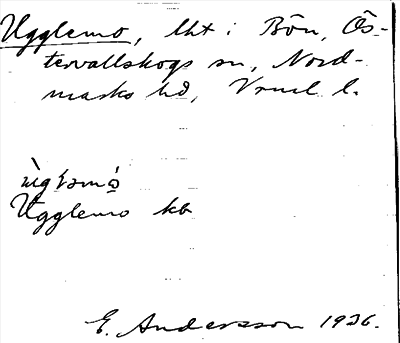 Ugglemo, lht i Bön, Ös-
tervallskogs sn, Nord-
marks hd, Vrml l.
Ugglemo kb
E. Andersson 1926.